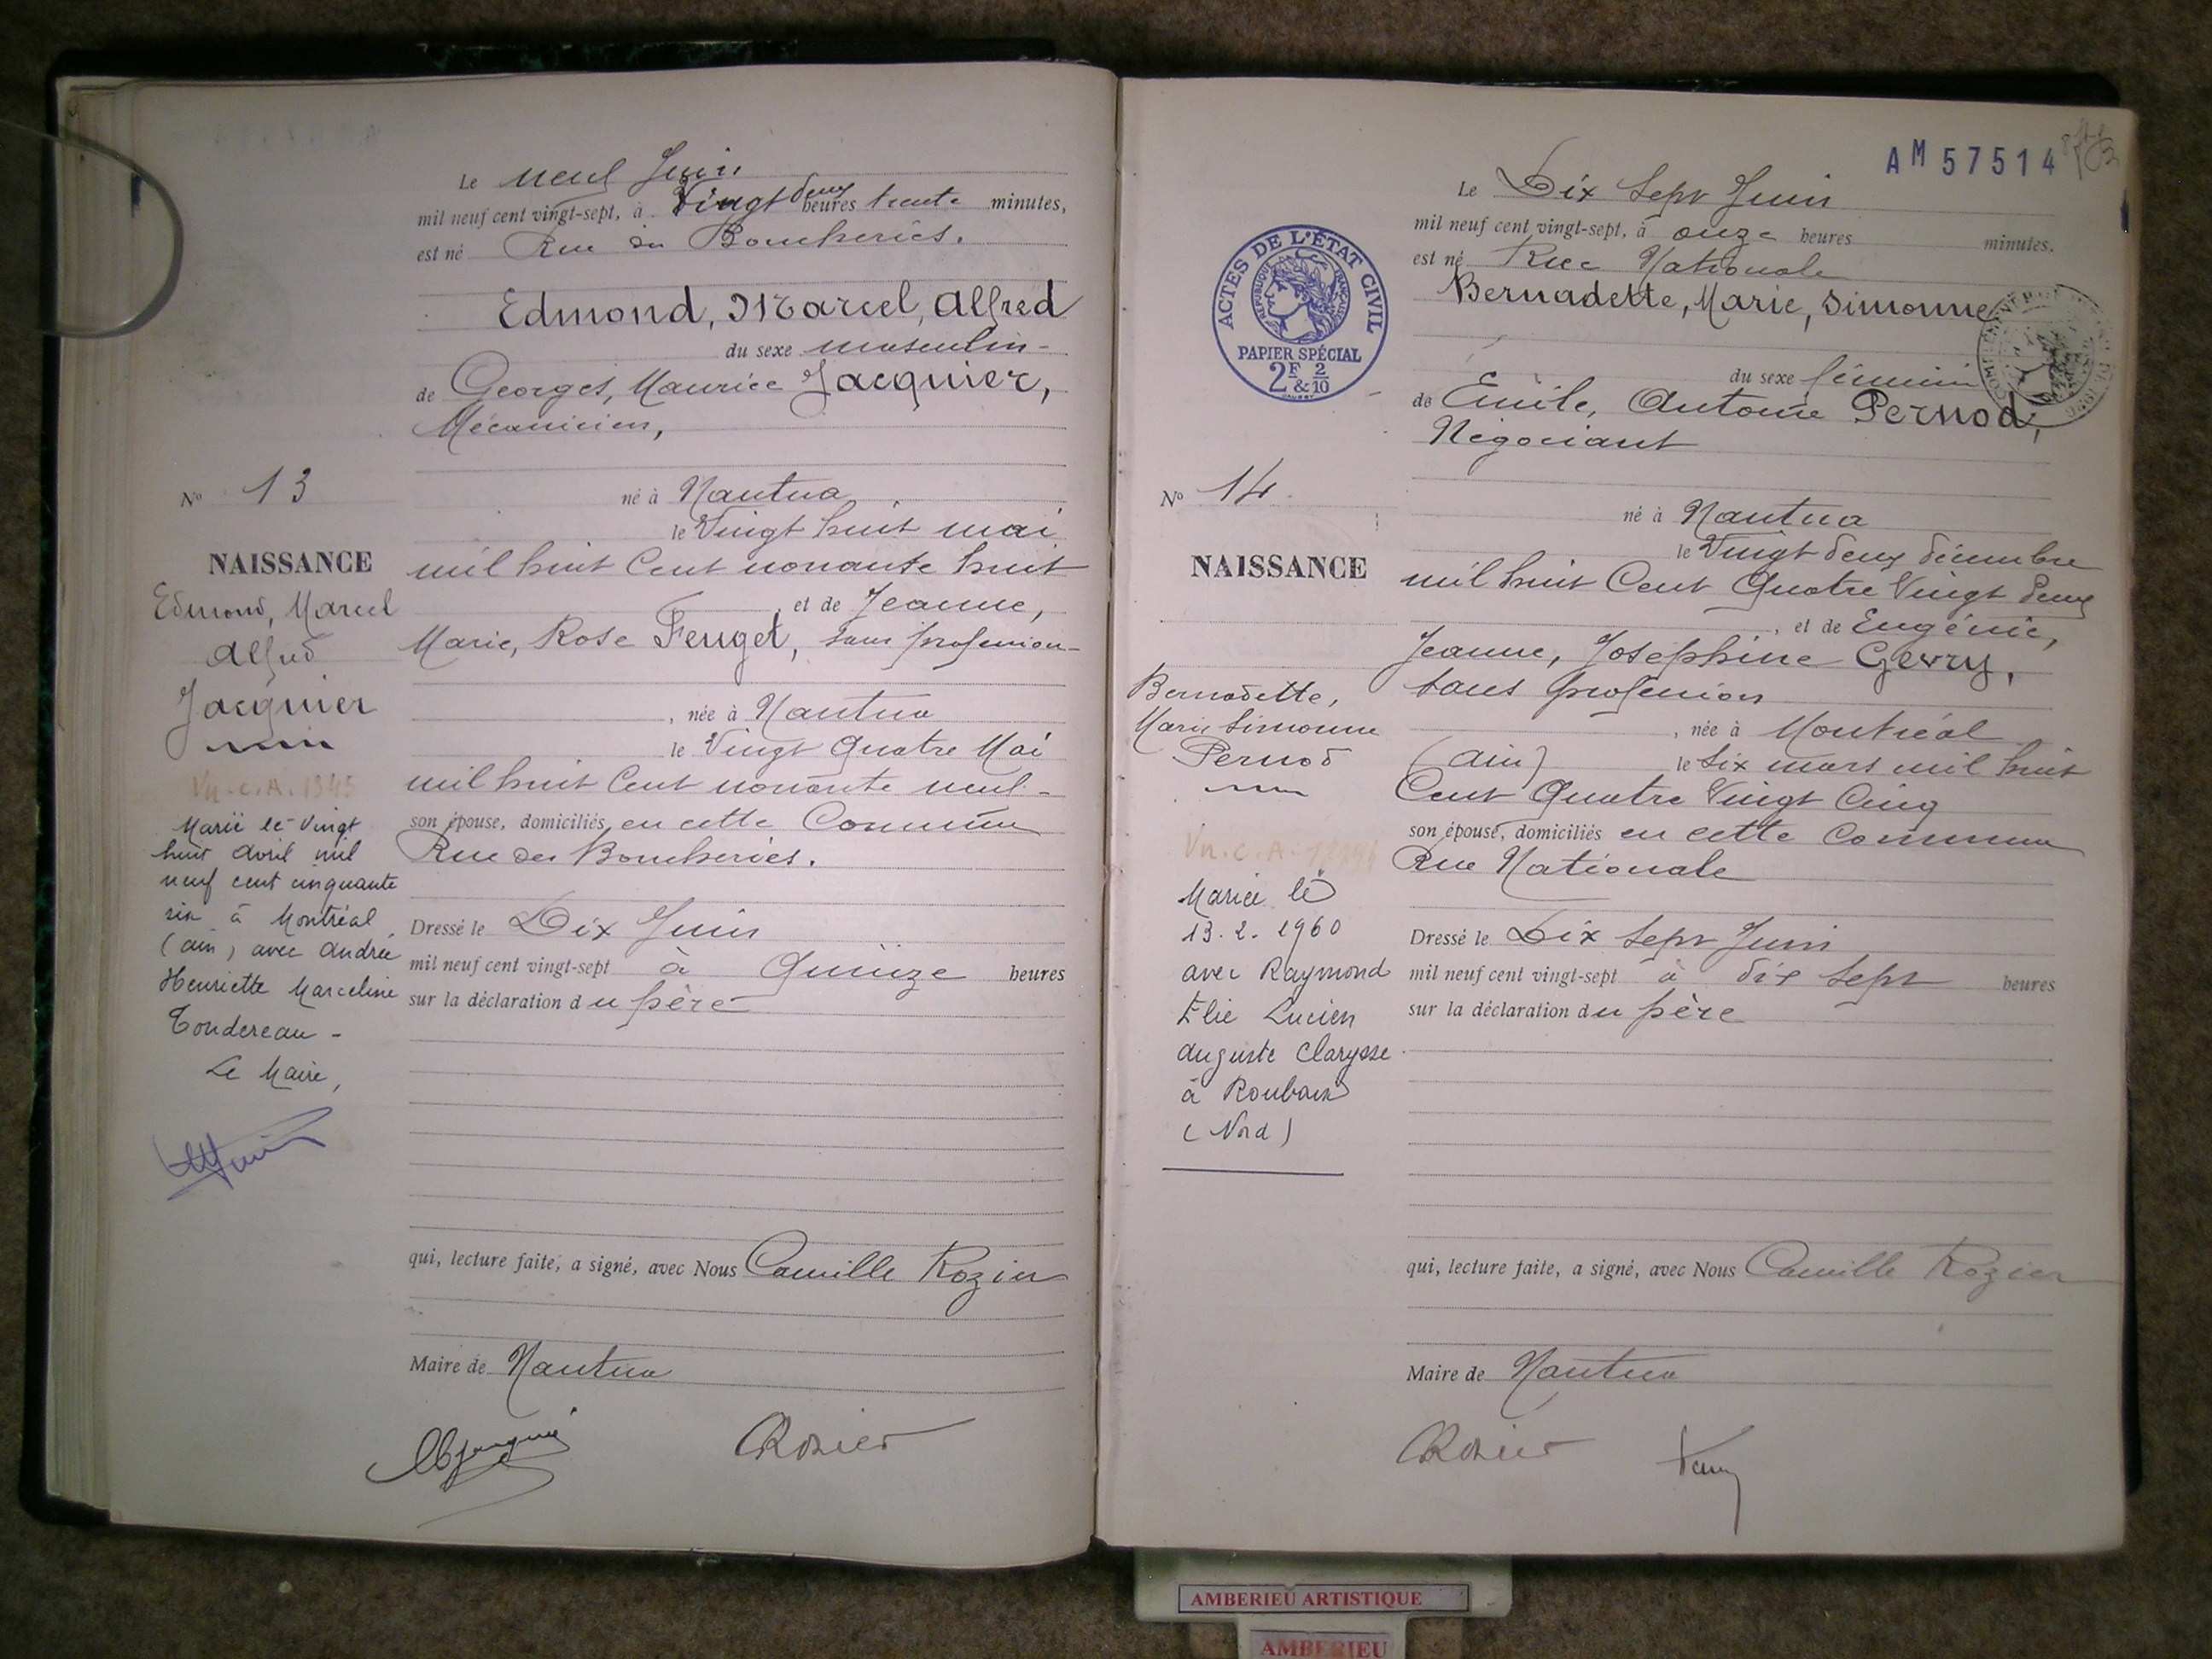 Le neuf Juin
mil neuf cent vingt-sept, à Vingt deux heures trente minutes,
est né Rue des Boucheries.
Edmond, Marcel, Alfred
du sexe masculin
de Georges, Maurice Jacquier,
Mécanicien,
né à Nantua
le Vingt huit mai
mil huit Cent nonante huit
, et de Jeanne,
Marie, Rose Feuget, sans profession
, née à Nantua
le Vingt Quatre Mai
mil huit Cent nonante neuf
son épouse, domiciliés en cette Commune
Rue des Boucheries.
Dressé le Dix Juin
mil neuf cent vingt-sept à Quinze heures
sur la déclaration du père
qui, lecture faite, a signé, avec Nous Camille Rozier
Maire de Nantua
CRozier
No 13
NAISSANCE
Edmond, Marcel
Alfred
Jacquier
Vu.C.A. 1945
Marié le Vingt
huit avril mil
neuf cent cinquante
six à Montréal
(ain) avec Andrée
Henriette Marceline
Tondereau -
Le Maire,
AM 57514
ACTES DE L'ÉTAT CIVIL
RÉPUBLIQUE FRANÇAISE
PAPIER SPÉCIAL
2F & 2/10
Le Dix Sept Juin
mil neuf cent vingt-sept, à onze heures minutes.
est né Rue Nationale
Bernadette, Marie, Simonne
du sexe féminin
de Emile, Antoine Pernod,
Négociant
né à Nantua
le Vingt deux décembre
mil huit Cent Quatre Vingt deux
, et de Eugénie,
Jeanne, Joséphine Gevry,
sans profession
, née à Montréal
(Ain) le six mars mil huit
Cent Quatre Vingt Cinq
son épouse, domiciliés en cette Commune
Rue Nationale
Dressé le Dix Sept Juin
mil neuf cent vingt-sept à dix sept heures
sur la déclaration du père
qui, lecture faite, a signé, avec Nous Camille Rozier
Maire de Nantua
CRozier
No 14.
NAISSANCE
Bernadette,
Marie Simonne
Pernod
Vu.C.A.
Mariée le
13.2.1960
avec Raymond
Élie Lucien
Auguste Clarysse
à Roubaix
(Nord)
AMBERIEU ARTISTIQUE
AMBERIEU